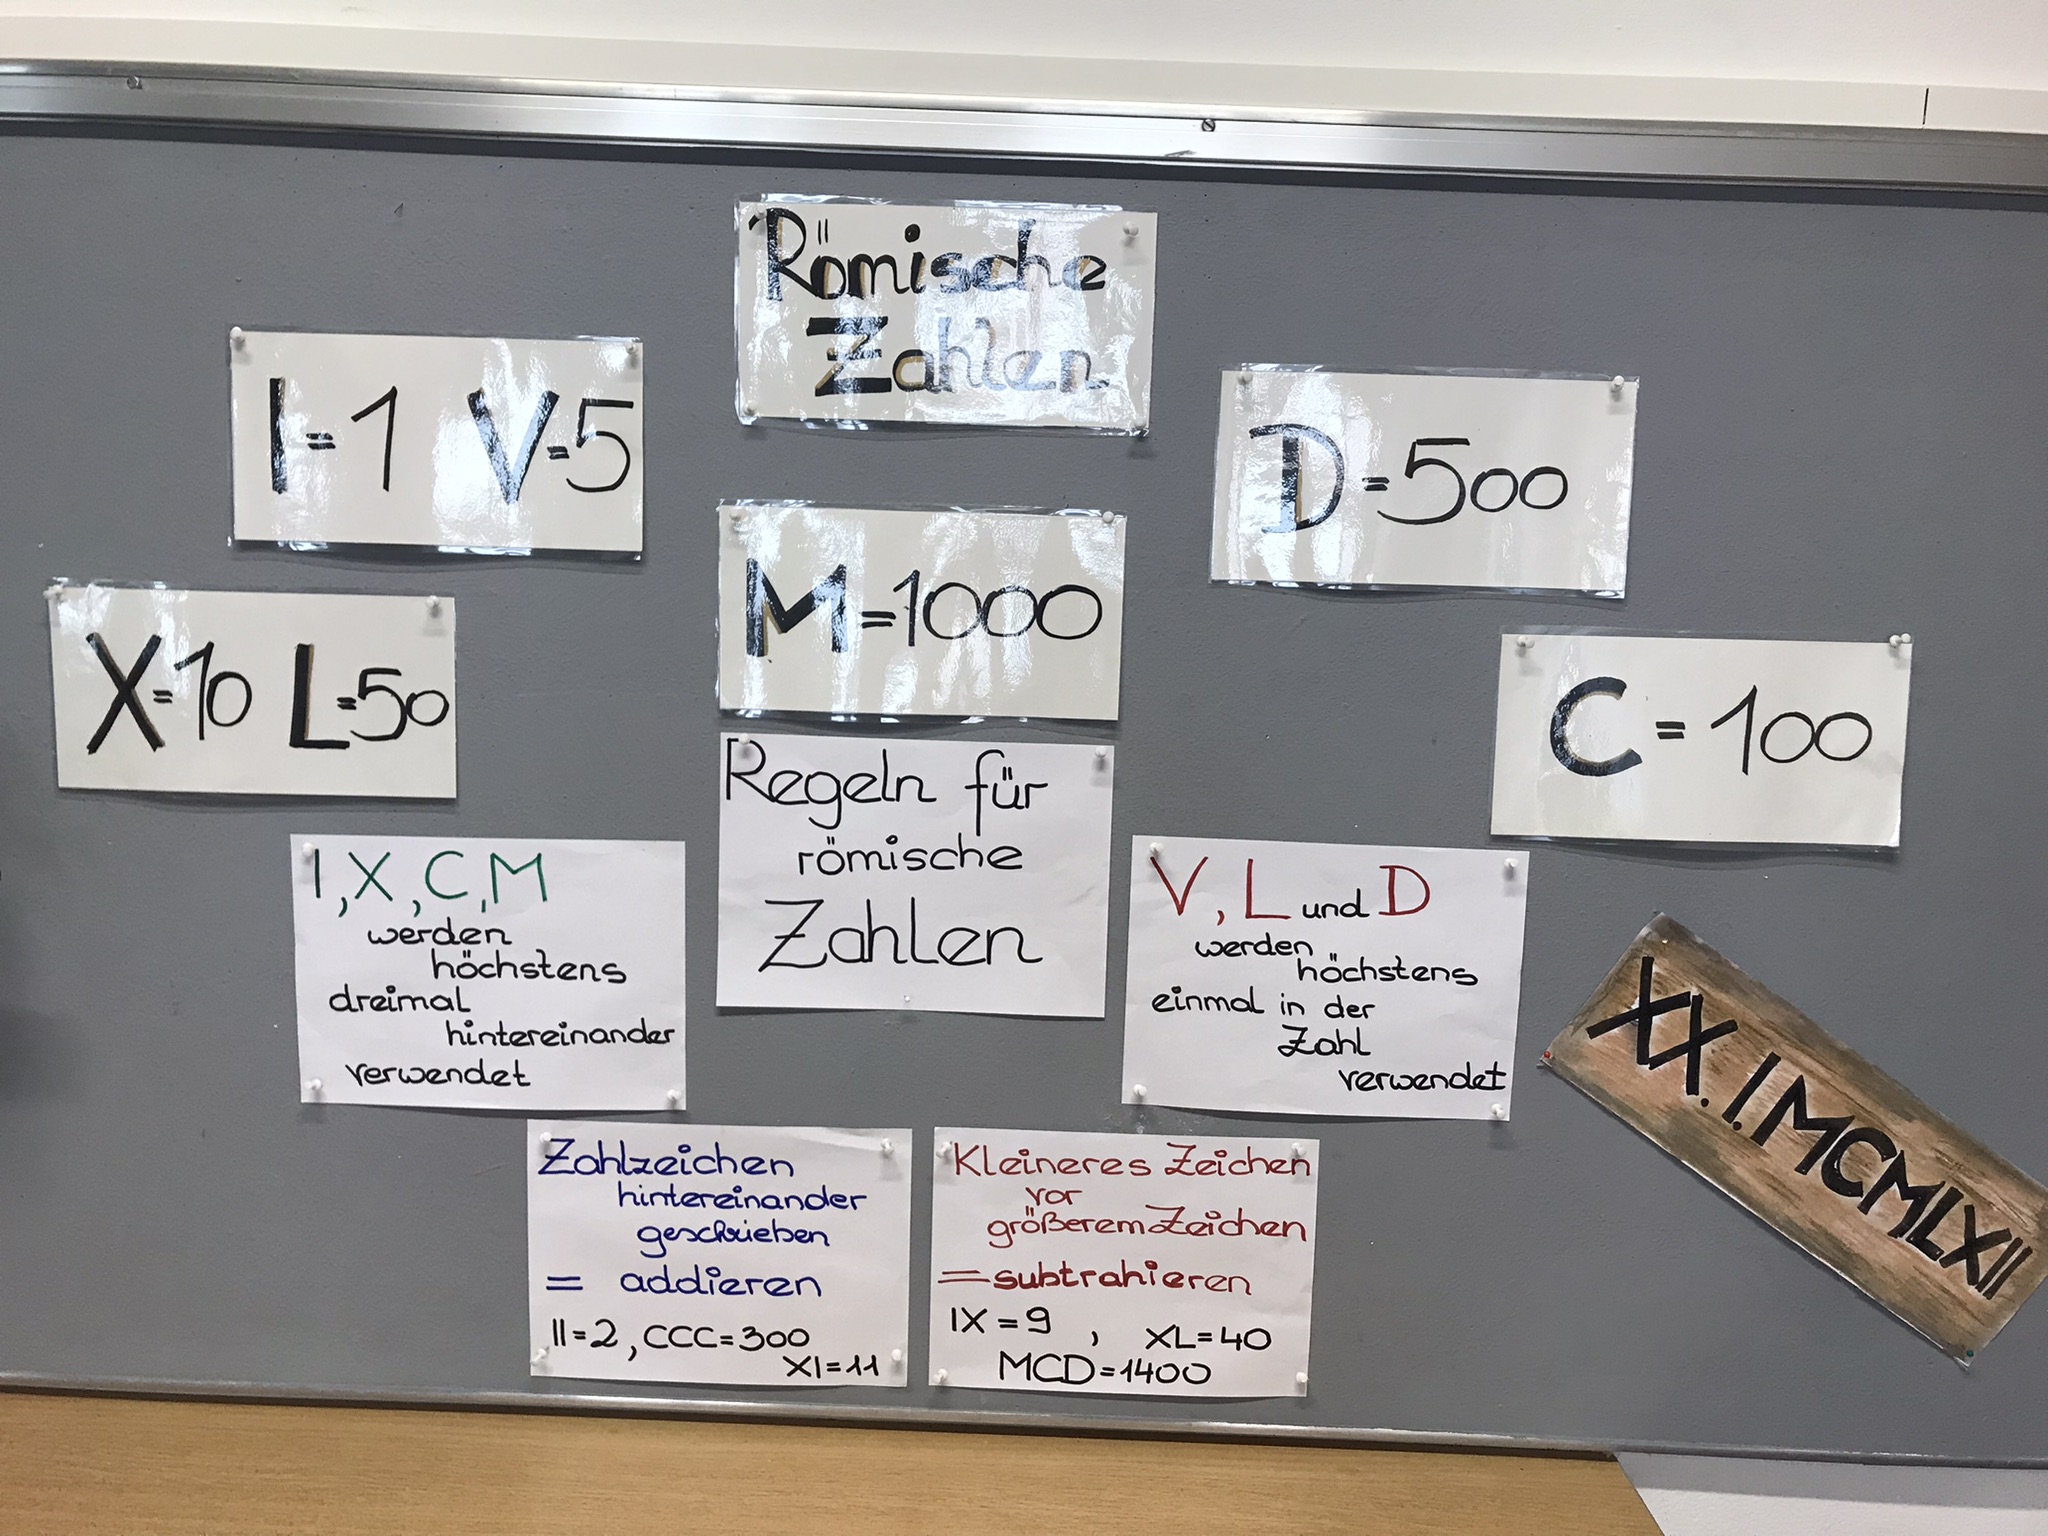 Römische
Zahlen
I=1 V=5
D=500
M=1000
X=10 L=50
C=100
Regeln für
römische
Zahlen
I, X, C, M
werden
höchstens
dreimal
hintereinander
verwendet
V, L und D
werden
höchstens
einmal in der
Zahl
verwendet
XX.I.MCMLXII
Zahlzeichen
hintereinander
geschrieben
= addieren
II=2, CCC=300
XI=11
Kleineres Zeichen
vor
größerem Zeichen
=subtrahieren
IX=9, XL=40
MCD=1400